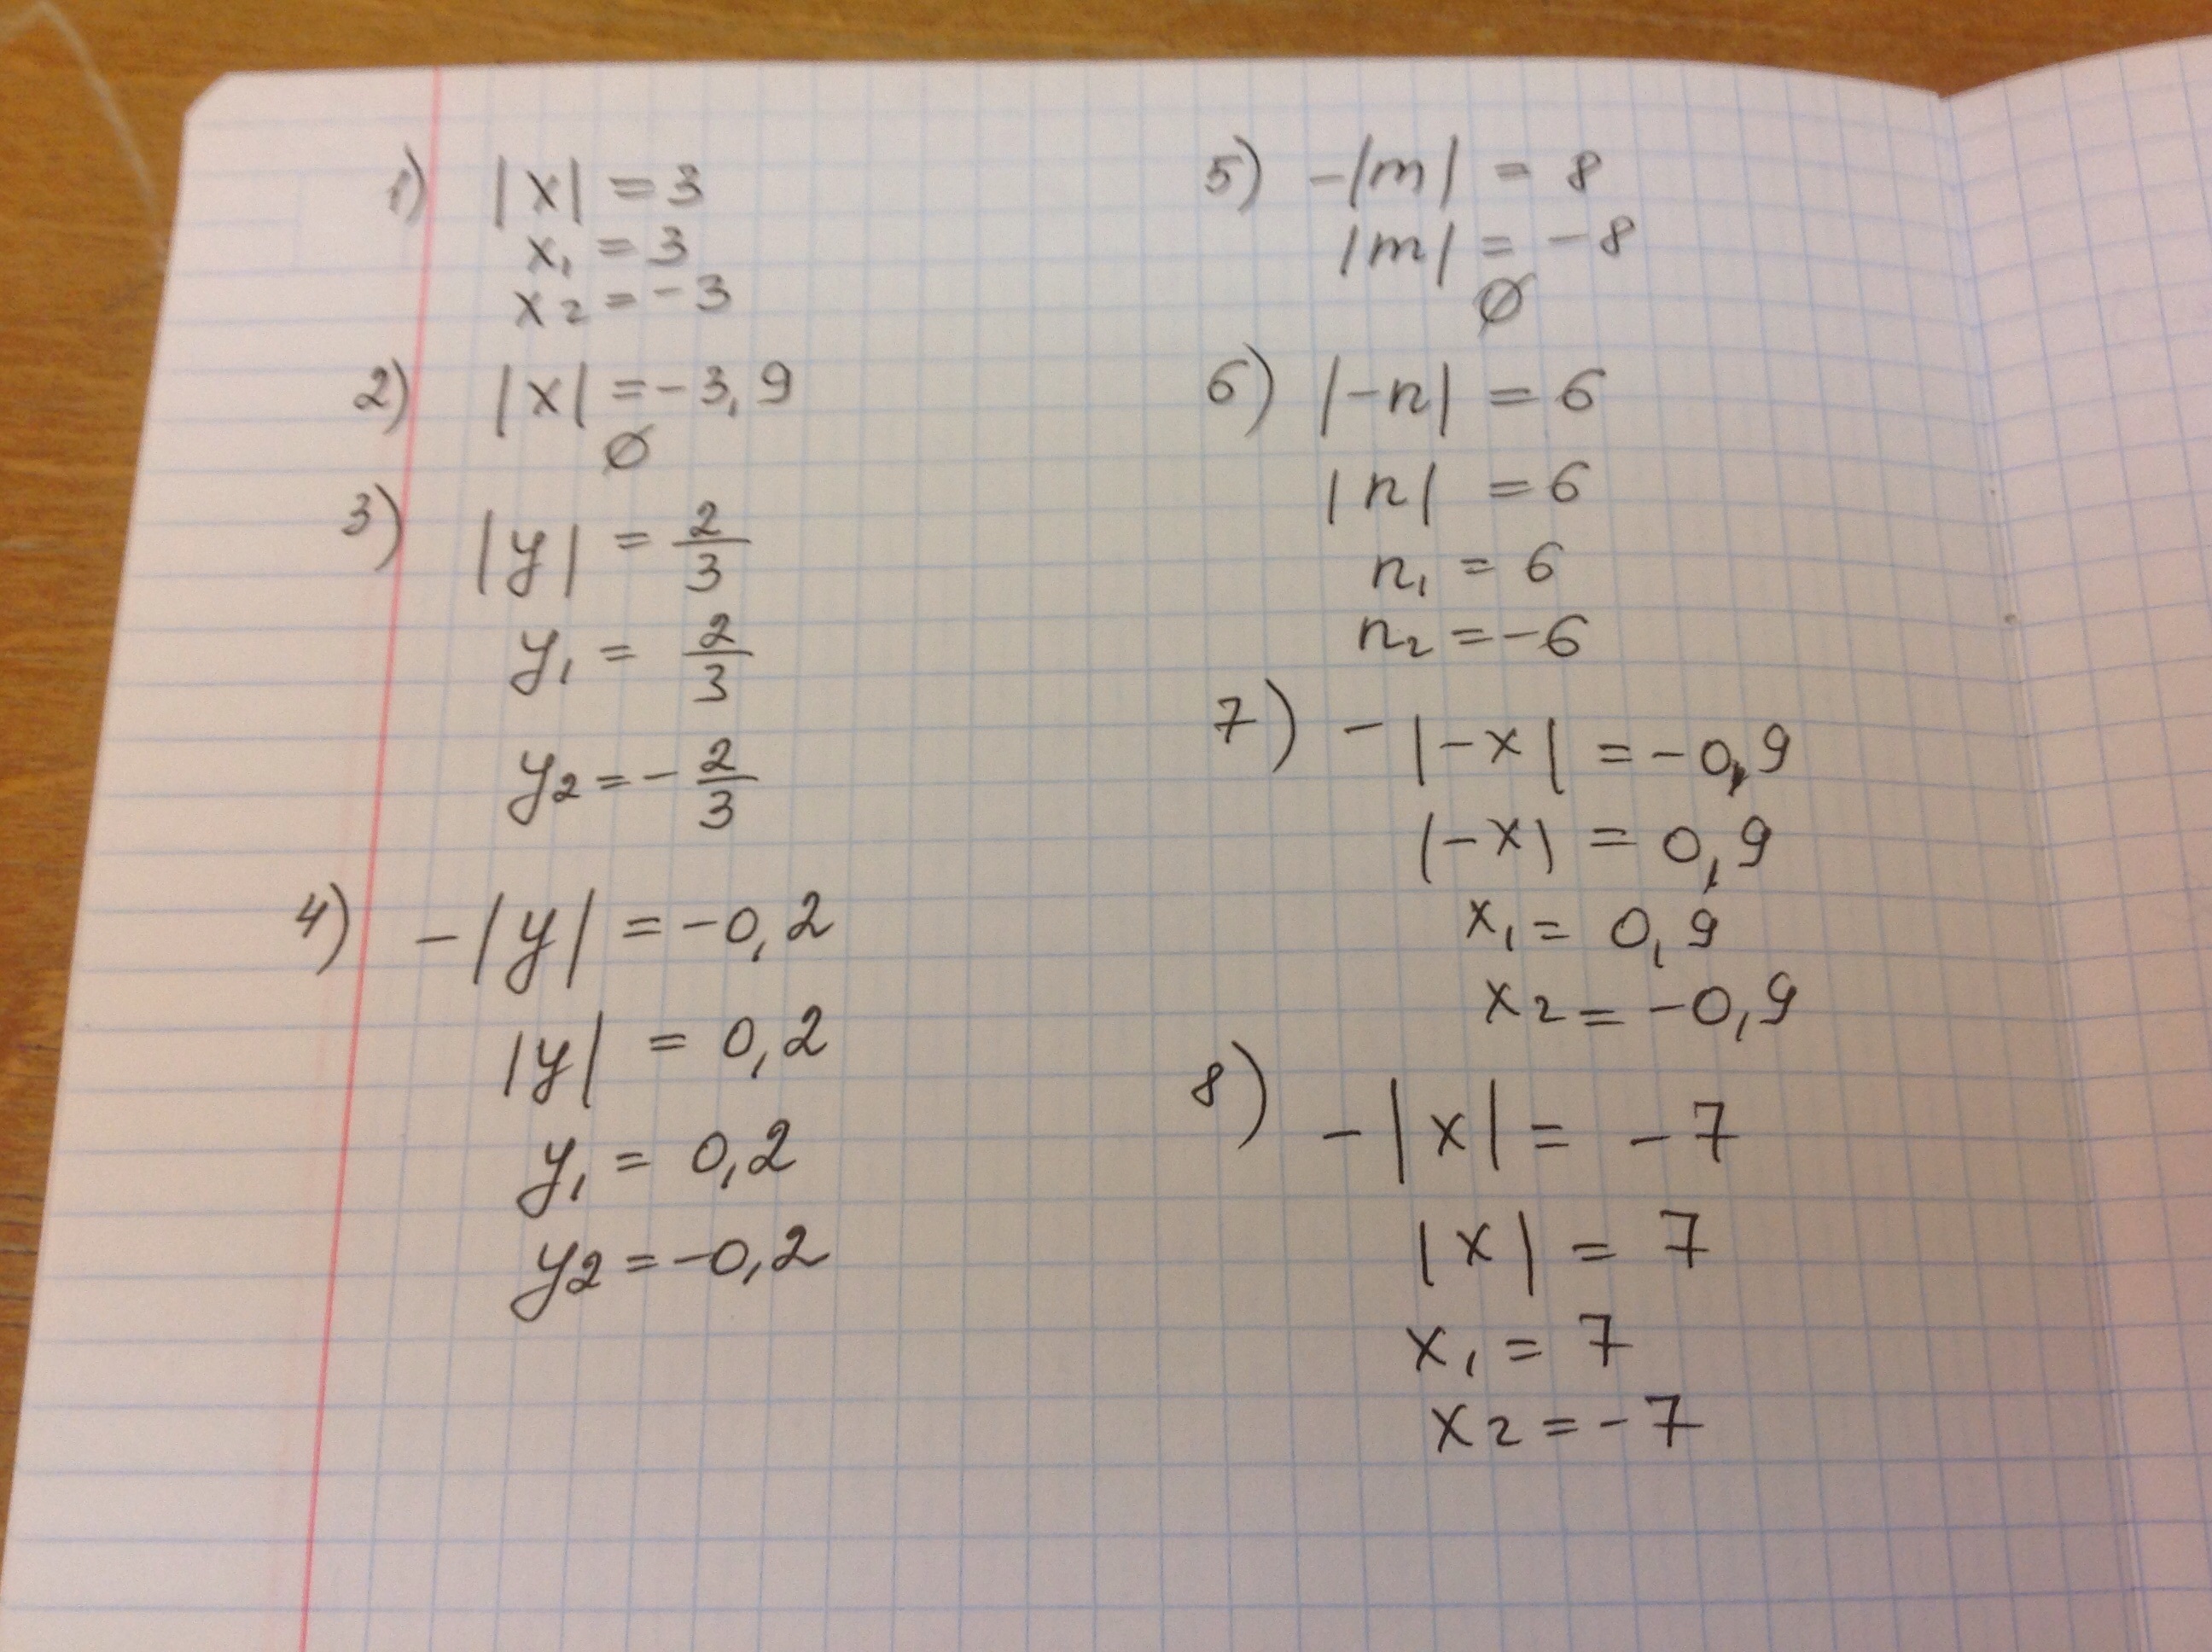 1) |x| = 3
x₁ = 3
x₂ = -3
2) |x| = -3,9
∅
3) |y| = 2/3
y₁ = 2/3
y₂ = -2/3
4) -|y| = -0,2
|y| = 0,2
y₁ = 0,2
y₂ = -0,2
5) -|m| = 8
|m| = -8
∅
6) |-n| = 6
|n| = 6
n₁ = 6
n₂ = -6
7) -|-x| = -0,9
|-x| = 0,9
x₁ = 0,9
x₂ = -0,9
8) -|x| = -7
|x| = 7
x₁ = 7
x₂ = -7